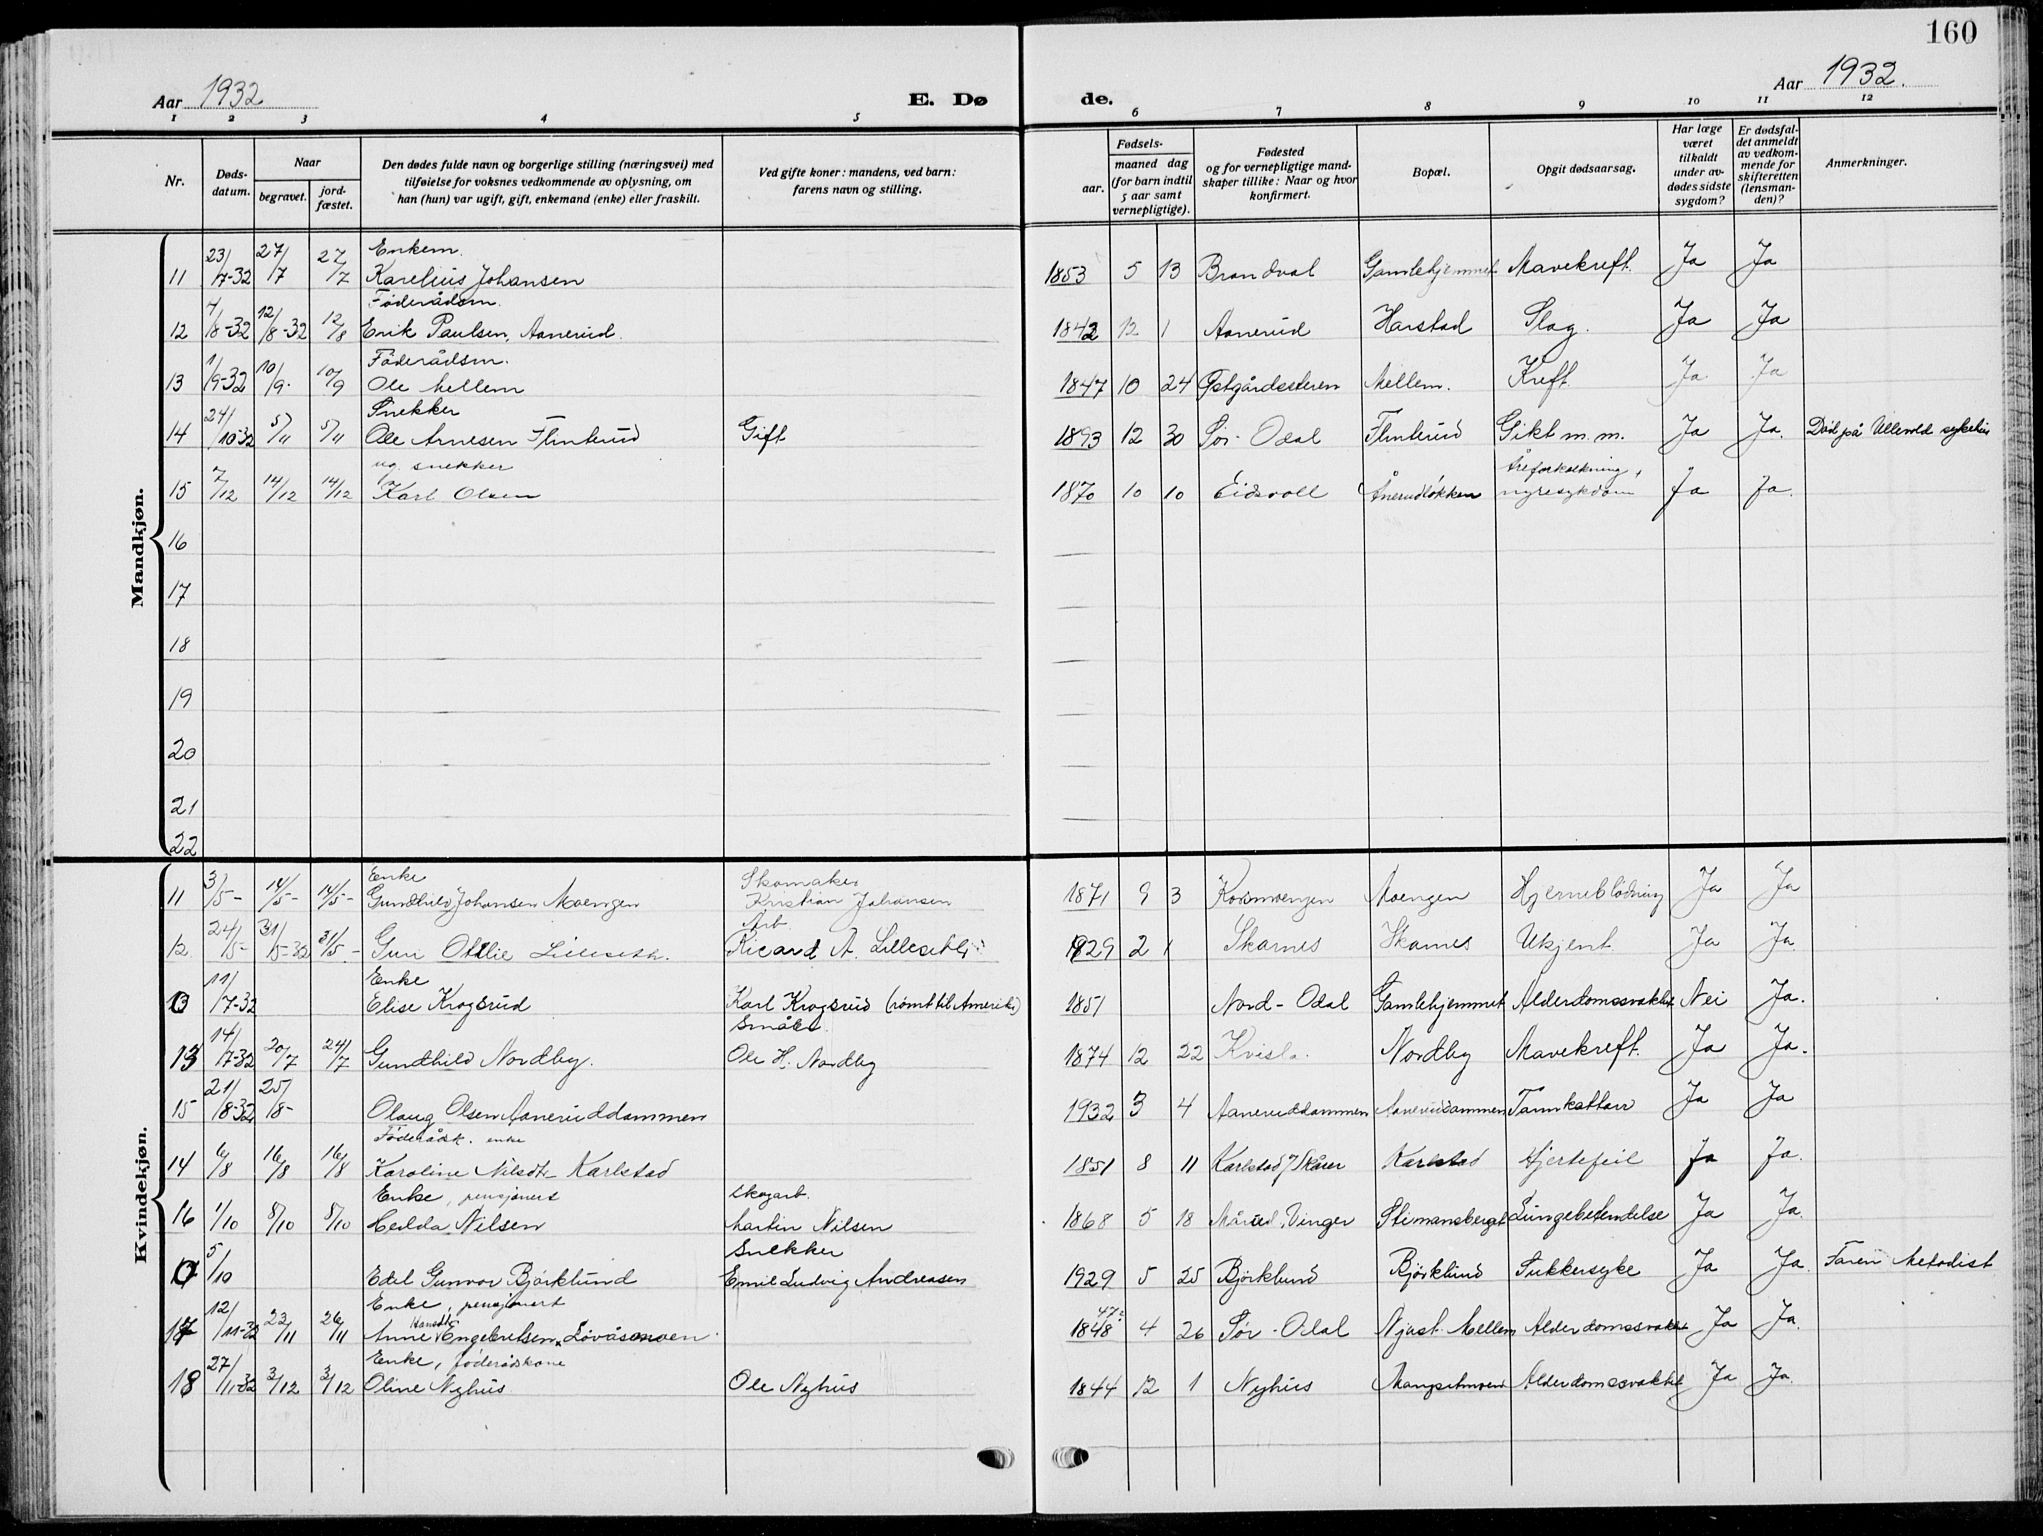 160
Aar 1932
E. Dø
de.
Aar 1932.
1 2 3 4 5 6 7 8 9 10 11 12
Nr.
Døds-
datum.
Naar
begravet.
jord-
fæstet.
Den dødes fulde navn og borgerlige stilling (næringsvei) med
tilføielse for voksnes vedkommende av oplysning, om
han (hun) var ugift, gift, enkemand (enke) eller fraskilt.
Ved gifte koner: mandens, ved barn:
farens navn og stilling.
Fødsels-
aar.
maaned dag
(for barn indtil
5 aar samt
vernepligtige).
Fødested
og for vernepligtige mand-
skaper tillike: Naar og hvor
konfirmert.
Bopæl.
Opgit dødsaarsag.
Har læge
været
tilkaldt
under av-
dødes sidste
sygdom?
Er dødsfal-
det anmeldt
av vedkom-
mende for
skifteretten
(lensman-
den)?
Anmerkninger.
Mandkjøn.
Enkem.
11 23/7-32 27/7 27/7 Karelius Johansen 1853 5 13 Brandval Gamlehjemmet Mavekreft. Ja Ja
Føderådsm.
12 4/8-32 12/8-32 12/8 Erik Paulsen, Aanerud. 1842 12 1 Aanerud Harstad Slag. Ja Ja
Føderådsm.
13 1/9-32 10/9. 10/9 Ole Mellem 1847 10 24 Østgårdseteren Mellem. Kreft. Ja Ja
Snekker
14 24/10-32 5/11 5/11 Ole Arnesen Flinterud Gift 1893 12 30 Sør-Odal Flinterud Gikt m.m. Ja Ja. Død på Ullevold sykehus
ug. snekker
Åreforkalkning,
15 7/12 14/12 14/12 Karl Olsen 1870 10 10 Eidsvoll Ånerudløkken nyresykdom Ja Ja.
16
17
18
19
20
21
22
Kvindekjøn.
Enke Skomaker
11 3/5- 14/5- 14/5- Gundhild Johansen Moengen Kristian Johansen 1871 9 3 Korsmoengen Moengen Hjerneblødning Ja Ja
Arb.
12 24/5- 31/5-32 31/5- Guri Ottilie Lilleseth. Ricard A. Lilleseth 1929 2 1 Skarnes Skarnes Ukjent Ja Ja
Enke
0 11/7-32 Elise Krogsrud Karl Krogsrud (rømt til Amerika) 1851 Nord-Odal Gamlehjemmet Alderdomssvakhet Nei Ja.
Småbr.
13 14/7-32 20/7 24/7 Gundhild Nordby. Ole H. Nordby 1874 12 22 Kvisla. Nordby Mavekreft. Ja Ja.
15 21/8-32 25/8- Olaug Olsen Aaneruddammen 1932 3 4 Aaneruddammen Aaneruddammen Tarmkattarr Ja Ja
Føderådsk. enke
14 6/8 16/8 16/8 Karoline Nilsdt. Karlstad 1851 8 11 Karlstad / Skårer Karlstad Hjertefeil Ja Ja.
Enke, pensjonert skogarb.
16 1/10 8/10 8/10 Hedda Nilsen Martin Nilsen 1868 5 18 Mårud, Vinger Stimansberget Lungebetendelse Ja Ja.
Snekker
0 5/10 Edel Gunvor Bjørklund Emil Ludvig Andreasen 1929 5 25 Bjørklund Bjørklund Sukkersyke Ja Ja. Faren Metodist
Enke, pensjonert
Hansdtr. 47?
17 12/11-32 22/11 26/11 Anne Engebretsen Løvåsmoen. 1848 4 26 Sør-Odal Mellem Alderdomssvakhet Ja Ja.
Enke, føderådskone
18 27/11-32 3/12 3/12 Oline Nyhus Ole Nyhus 1844 12 1 Nyhus Alderdomssvakhet Ja Ja.